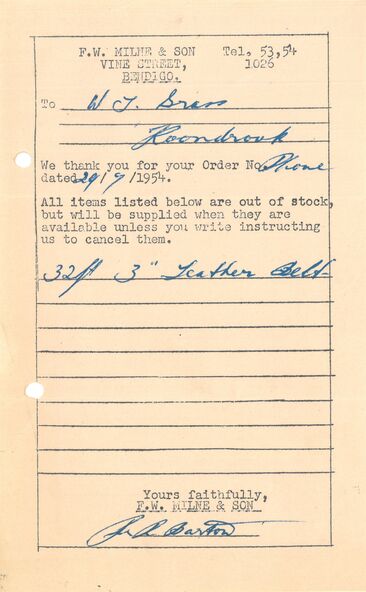 F.W. MILNE & SON Tel. 53,54
VINE STREET, 1026
BENDIGO.
To W J. Brass
Koondrook
We thank you for your Order No Phone
dated 29/9/1954.
All items listed below are out of stock,
but will be supplied when they are
available unless you write instructing
us to cancel them.
32ft 3" Leather Belt
Yours faithfully,
F.W. MILNE & SON
Barton